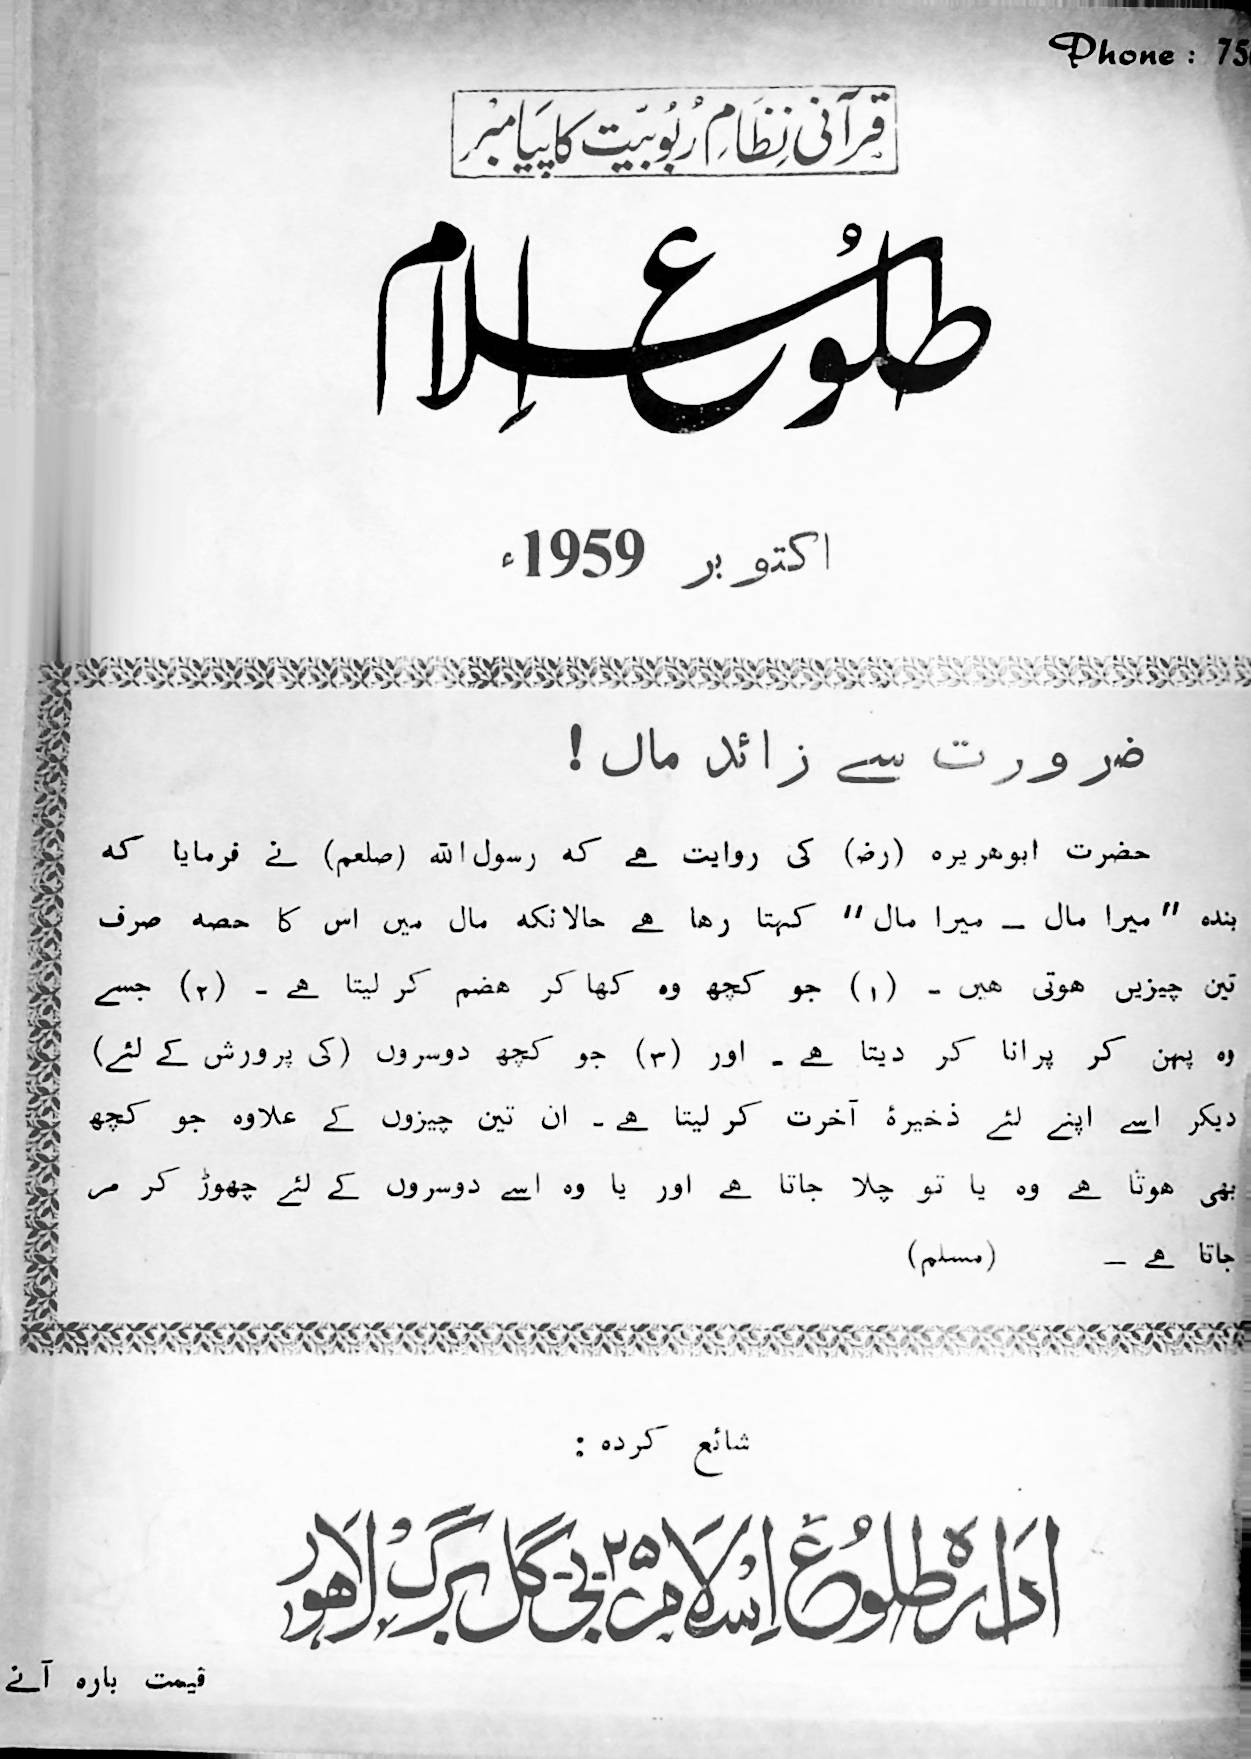 Phone : 75
قرآنی نظامِ ربوبیّت کا پیامبر
طلوعِ اسلام
اکتوبر 1959ء
ضرورت سے زائد مال !
حضرت ابوھریرہ (رض) کی روایت ھے کہ رسول اللہ (صلعم) نے فرمایا کہ
بندہ ”میرا مال ـ میرا مال“ کہتا رھا ھے حالانکہ مال میں اس کا حصہ صرف
تین چیزیں ھوتی ھیں ـ (۱) جو کچھ وہ کھا کر ھضم کر لیتا ھے ـ (۲) جسے
وہ پہن کر پرانا کر دیتا ھے ـ اور (۳) جو کچھ دوسروں (کی پرورش کے لئے)
دیکر اسے اپنے لئے ذخیرۂ آخرت کر لیتا ھے ـ ان تین چیزوں کے علاوہ جو کچھ
بھی ھوتا ھے وہ یا تو چلا جاتا ھے اور یا وہ اسے دوسروں کے لئے چھوڑ کر مر
جاتا ھے ـ (مسلم)
شائع کردہ :
ادارہ طلوعِ اسلام ۲۵-بی-گل برگ لاھور
قیمت بارہ آنے